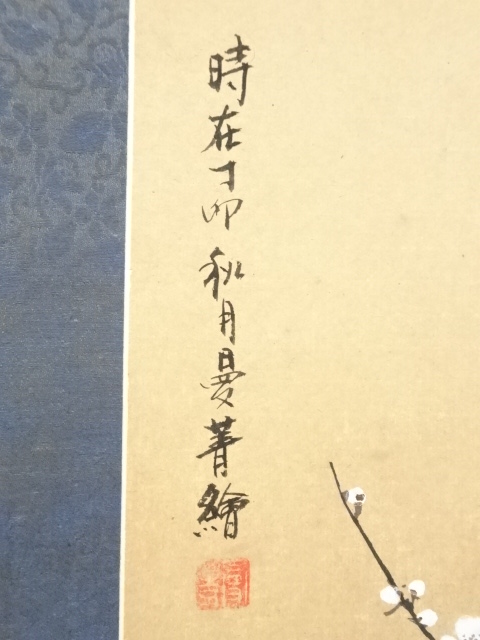 時在丁卯秋月曼菁繪